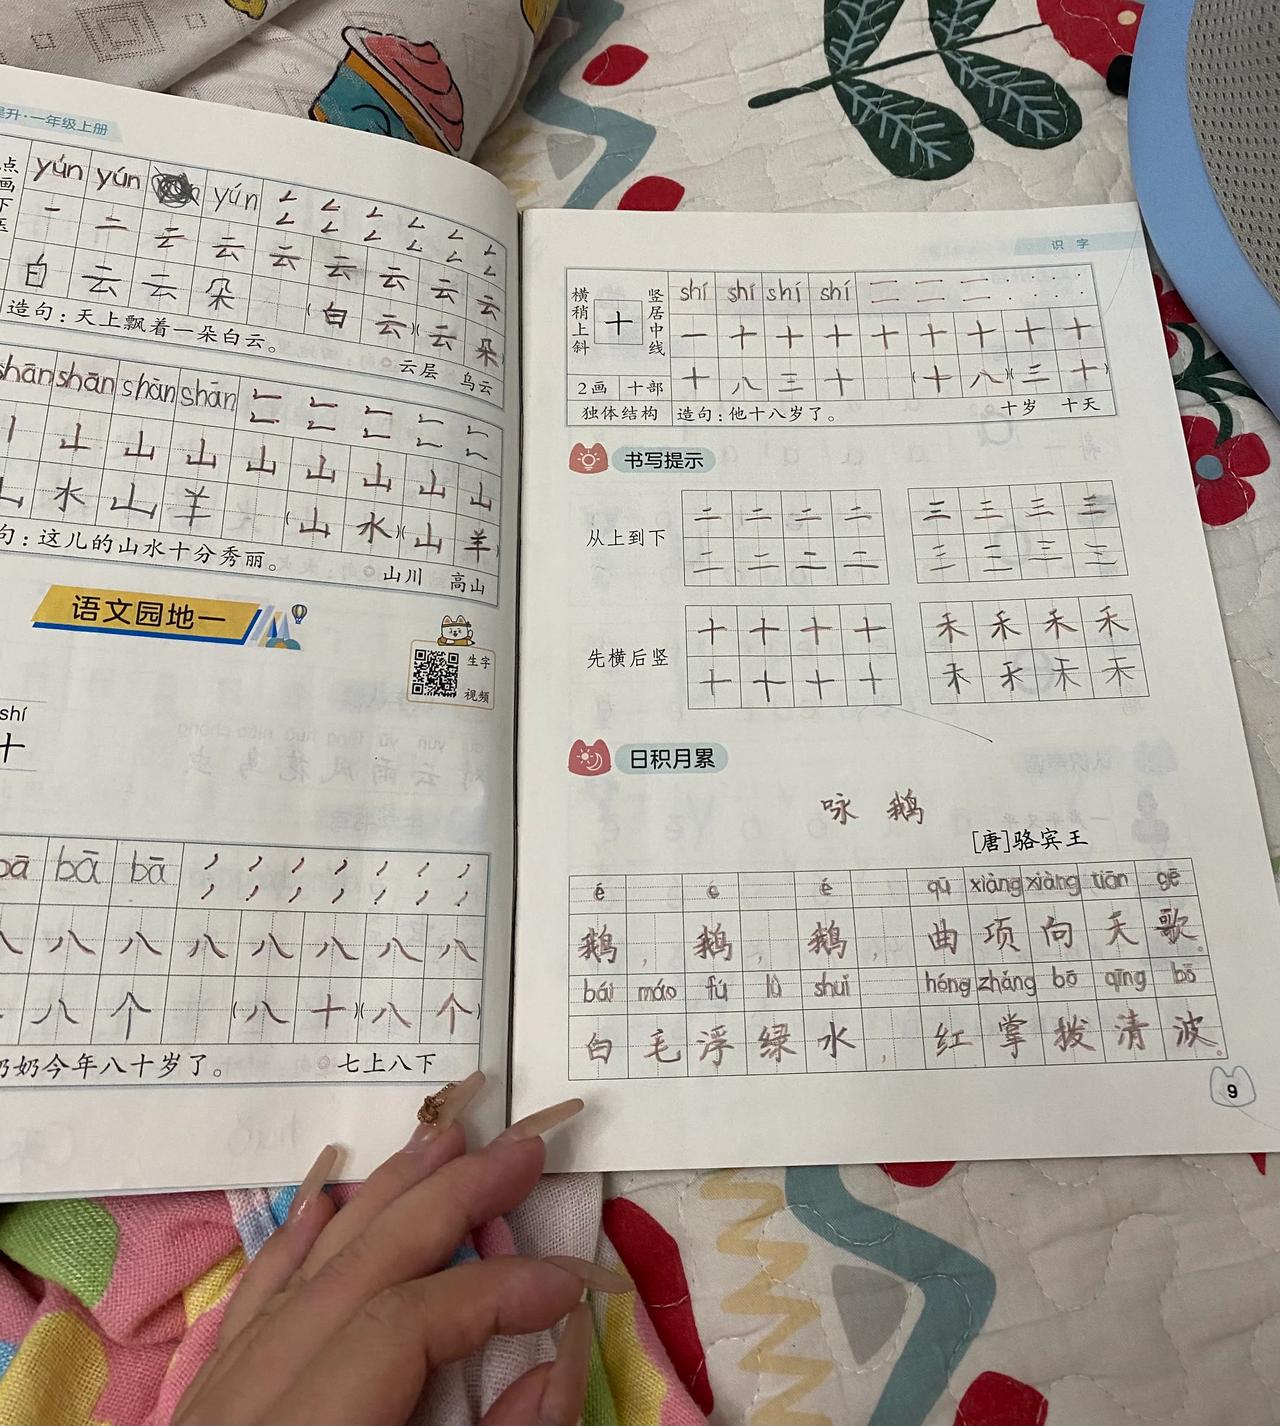 提升·一年级上册
点画下压
yún yún yún
一 二 云 云 云 云 云 云 云
白 云 云 朵 (白 云)(云 朵)
造句:天上飘着一朵白云。
云层 乌云
shān shān shān shān
山 山 山 山 山 山 山 山
山 水 山 羊 (山 水)(山 羊)
句:这儿的山水十分秀丽。
山川 高山
语文园地一
生字视频
shí
十
bā bā bā
八 八 八 八 八 八 八 八
八 个 (八 十)(八 个)
奶奶今年八十岁了。
七上八下
识字
横稍上斜 十 竖居中线
shí shí shí shí
一 十 十 十 十 十 十 十 十
2画 十部
十 八 三 十 (十 八)(三 十)
独体结构 造句:他十八岁了。
十岁 十天
书写提示
从上到下
二 二 二 二 三 三 三 三
二 二 二 二 三 三 三 三
先横后竖
十 十 十 十 禾 禾 禾 禾
十 十 十 十 禾 禾 禾 禾
日积月累
咏 鹅
[唐]骆宾王
é é é qū xiàng xiàng tiān gē
鹅,鹅,鹅,曲项向天歌。
bái máo fú lǜ shuǐ hóng zhǎng bō qīng bō
白毛浮绿水,红掌拨清波。
9